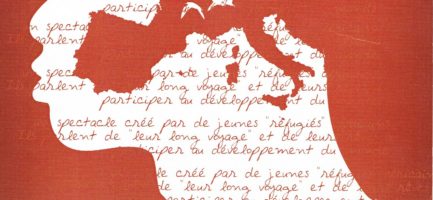 participer
un spectacle
parlent voyage" et
au développement du
créé par de jeunes "réfugiés
leur long voyage" et de leurs
participer au développement du
spectacle créé par de jeunes "réfugiés"
rlent de "leur long voyage" et de leur
ticiper au développement du
le créé par de jeunes "réfugiés
de "leur long voyage" et de
participer au développement